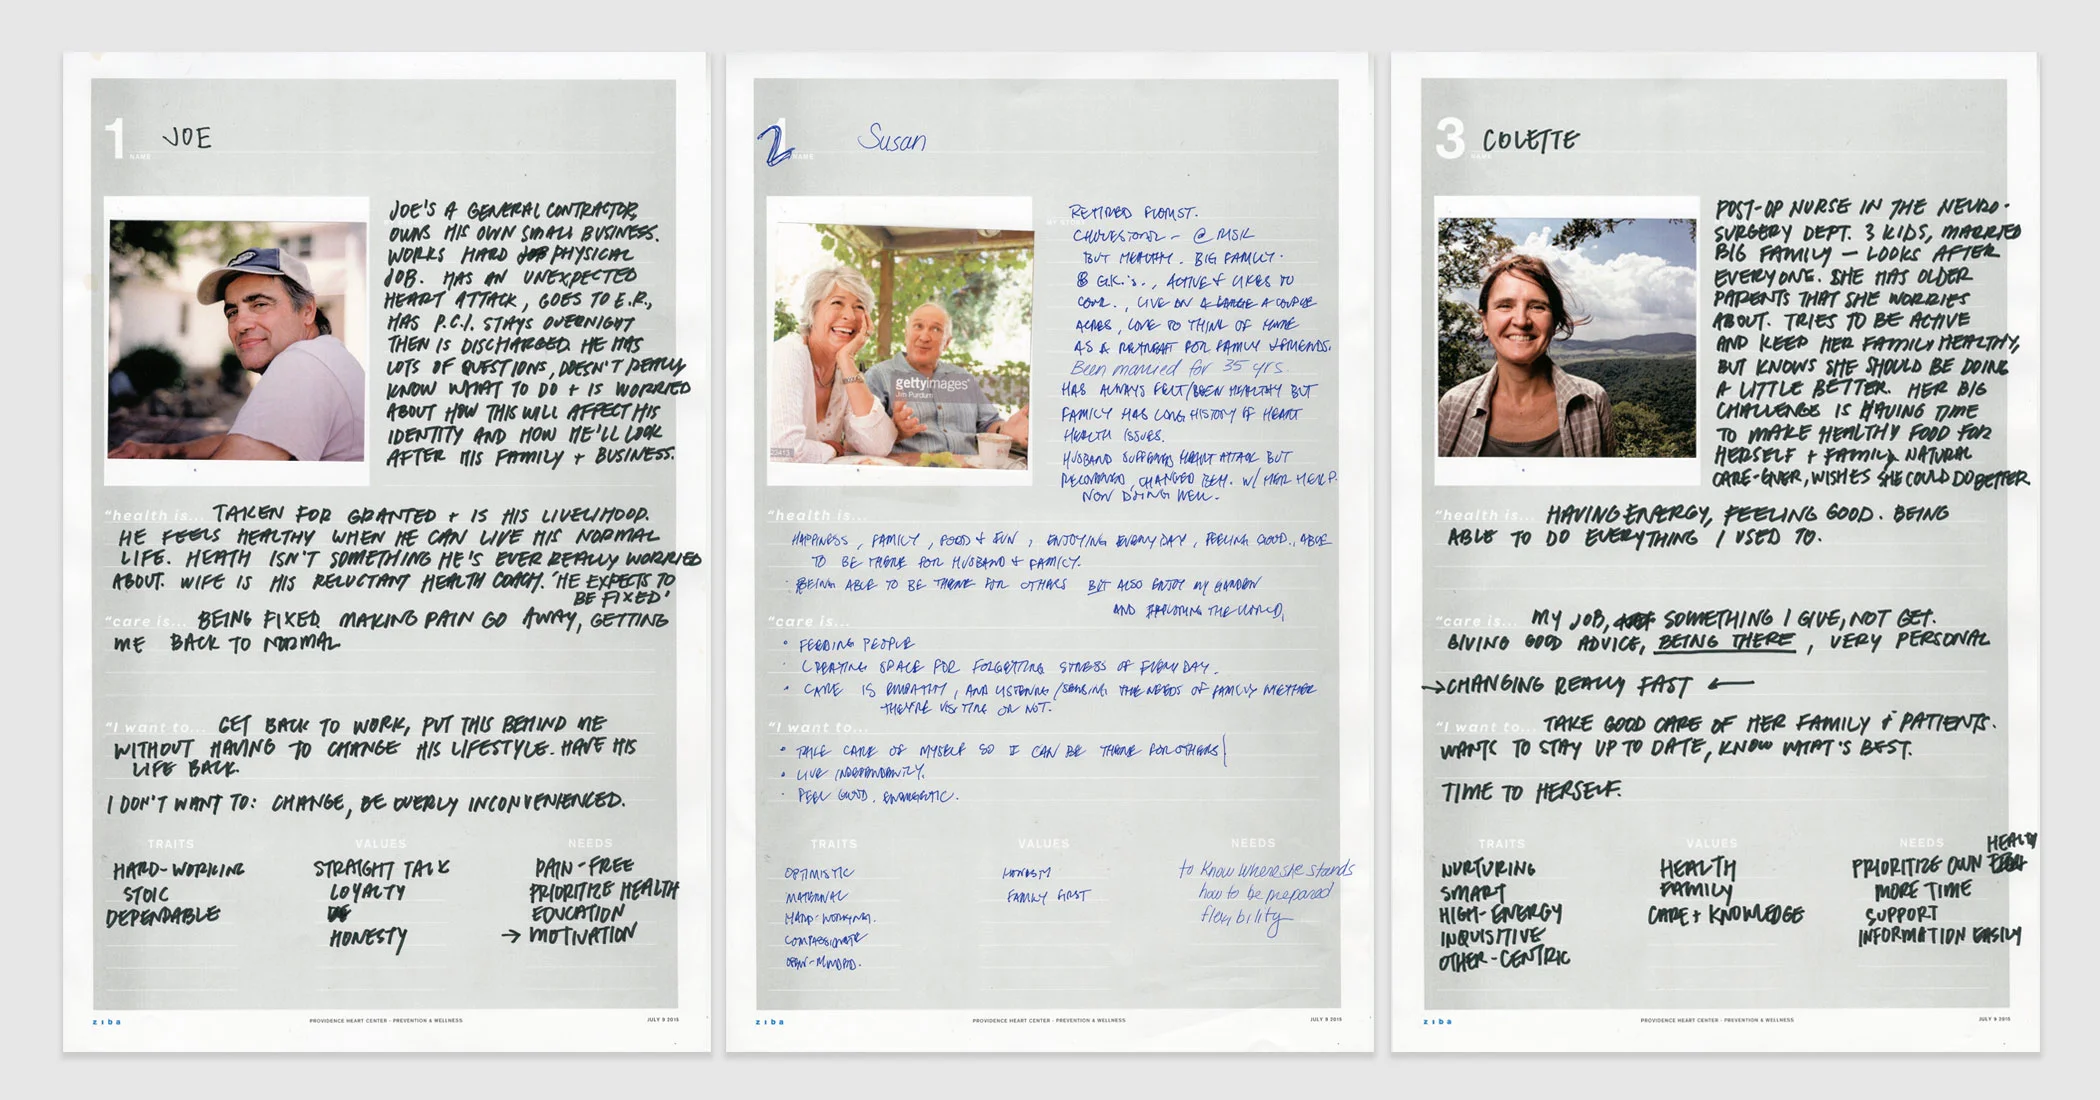 1 NAME JOE
JOE'S A GENERAL CONTRACTOR,
OWNS HIS OWN SMALL BUSINESS.
WORKS HARD PHYSICAL
JOB. HAS AN UNEXPECTED
HEART ATTACK, GOES TO E.R.,
HAS P.C.I. STAYS OVERNIGHT
THEN IS DISCHARGED. HE HAS
LOTS OF QUESTIONS, DOESN'T REALLY
KNOW WHAT TO DO + IS WORRIED
ABOUT HOW THIS WILL AFFECT HIS
IDENTITY AND HOW HE'LL LOOK
AFTER HIS FAMILY + BUSINESS.
"health is... TAKEN FOR GRANTED + IS HIS LIVELIHOOD.
HE FEELS HEALTHY WHEN HE CAN LIVE HIS NORMAL
LIFE. HEATH ISN'T SOMETHING HE'S EVER REALLY WORRIED
ABOUT. WIFE IS HIS RELUCTANT HEALTH COACH. 'HE EXPECTS TO
BE FIXED'
"care is... BEING FIXED. MAKING PAIN GO AWAY, GETTING
ME BACK TO NORMAL
"I want to... GET BACK TO WORK, PUT THIS BEHIND ME
WITHOUT HAVING TO CHANGE HIS LIFESTYLE. HAVE HIS
LIFE BACK.
I DON'T WANT TO: CHANGE, BE OVERLY INCONVENIENCED.
TRAITS VALUES NEEDS
HARD-WORKING STRAIGHT TALK PAIN-FREE
STOIC LOYALTY PRIORITIZE HEALTH
DEPENDABLE EDUCATION
HONESTY → MOTIVATION
ziba PROVIDENCE HEART CENTER - PREVENTION & WELLNESS JULY 9 2015
2 NAME Susan
RETIRED FLORIST.
CHOLESTEROL - @ RISK
BUT HEALTHY. BIG FAMILY.
8 G.K.'s., ACTIVE + LIKES TO
COOK., LIVE ON A LARGE A COUPLE
ACRES, LOVE TO THINK OF HOME
AS A RETREAT FOR FAMILY + FRIENDS.
Been married for 35 yrs.
HAS ALWAYS FELT/BEEN HEALTHY BUT
FAMILY HAS LONG HISTORY OF HEART
HEALTH ISSUES.
HUSBAND SUFFERED HEART ATTACK BUT
RECOVERED, CHANGED BEH. W/ HER HELP.
NOW DOING WELL.
gettyimages
Jim Purdum
"health is...
HAPPINESS, FAMILY, FOOD + FUN, ENJOYING EVERYDAY, FEELING GOOD., ABLE
TO BE THERE FOR HUSBAND + FAMILY.
· BEING ABLE TO BE THERE FOR OTHERS BUT ALSO ENJOY MY GARDEN
AND EXPLORING THE WORLD,
"care is...
• FEEDING PEOPLE
· CREATING SPACE FOR FORGETTING STRESS OF EVERYDAY.
• CARE IS EMPATHY, AND LISTENING/SENSING THE NEEDS OF FAMILY WHETHER
THEY'RE VISITING OR NOT.
"I want to...
• TAKE CARE OF MYSELF SO I CAN BE THERE FOR OTHERS
• LIVE INDEPENDANTLY.
• FEEL GOOD. ENERGETIC.
TRAITS VALUES NEEDS
OPTIMISTIC HONESTY to know where she stands
MATERNAL FAMILY FIRST how to be prepared
HARD-WORKING. flexibility
COMPASSIONATE
OPEN-MINDED.
ziba PROVIDENCE HEART CENTER - PREVENTION & WELLNESS JULY 9 2015
3 NAME COLETTE
POST-OP NURSE IN THE NEURO-
SURGERY DEPT. 3 KIDS, MARRIED
BIG FAMILY — LOOKS AFTER
EVERYONE. SHE HAS OLDER
PARENTS THAT SHE WORRIES
ABOUT. TRIES TO BE ACTIVE
AND KEEP HER FAMILY HEALTHY,
BUT KNOWS SHE SHOULD BE DOING
A LITTLE BETTER. HER BIG
CHALLENGE IS HAVING TIME
TO MAKE HEALTHY FOOD FOR
HERSELF + FAMILY. NATURAL
CARE-GIVER, WISHES SHE COULD DO BETTER.
"health is... HAVING ENERGY, FEELING GOOD. BEING
ABLE TO DO EVERYTHING I USED TO.
"care is... MY JOB, SOMETHING I GIVE, NOT GET.
GIVING GOOD ADVICE, BEING THERE, VERY PERSONAL
→ CHANGING REALLY FAST ←
"I want to... TAKE GOOD CARE OF HER FAMILY + PATIENTS.
WANTS TO STAY UP TO DATE, KNOW WHAT'S BEST.
TIME TO HERSELF.
TRAITS VALUES NEEDS
NURTURING HEALTH PRIORITIZE OWN HEALTH
SMART FAMILY MORE TIME
HIGH-ENERGY CARE + KNOWLEDGE SUPPORT
INQUISITIVE INFORMATION EASILY
OTHER-CENTRIC
ziba PROVIDENCE HEART CENTER - PREVENTION & WELLNESS JULY 9 2015